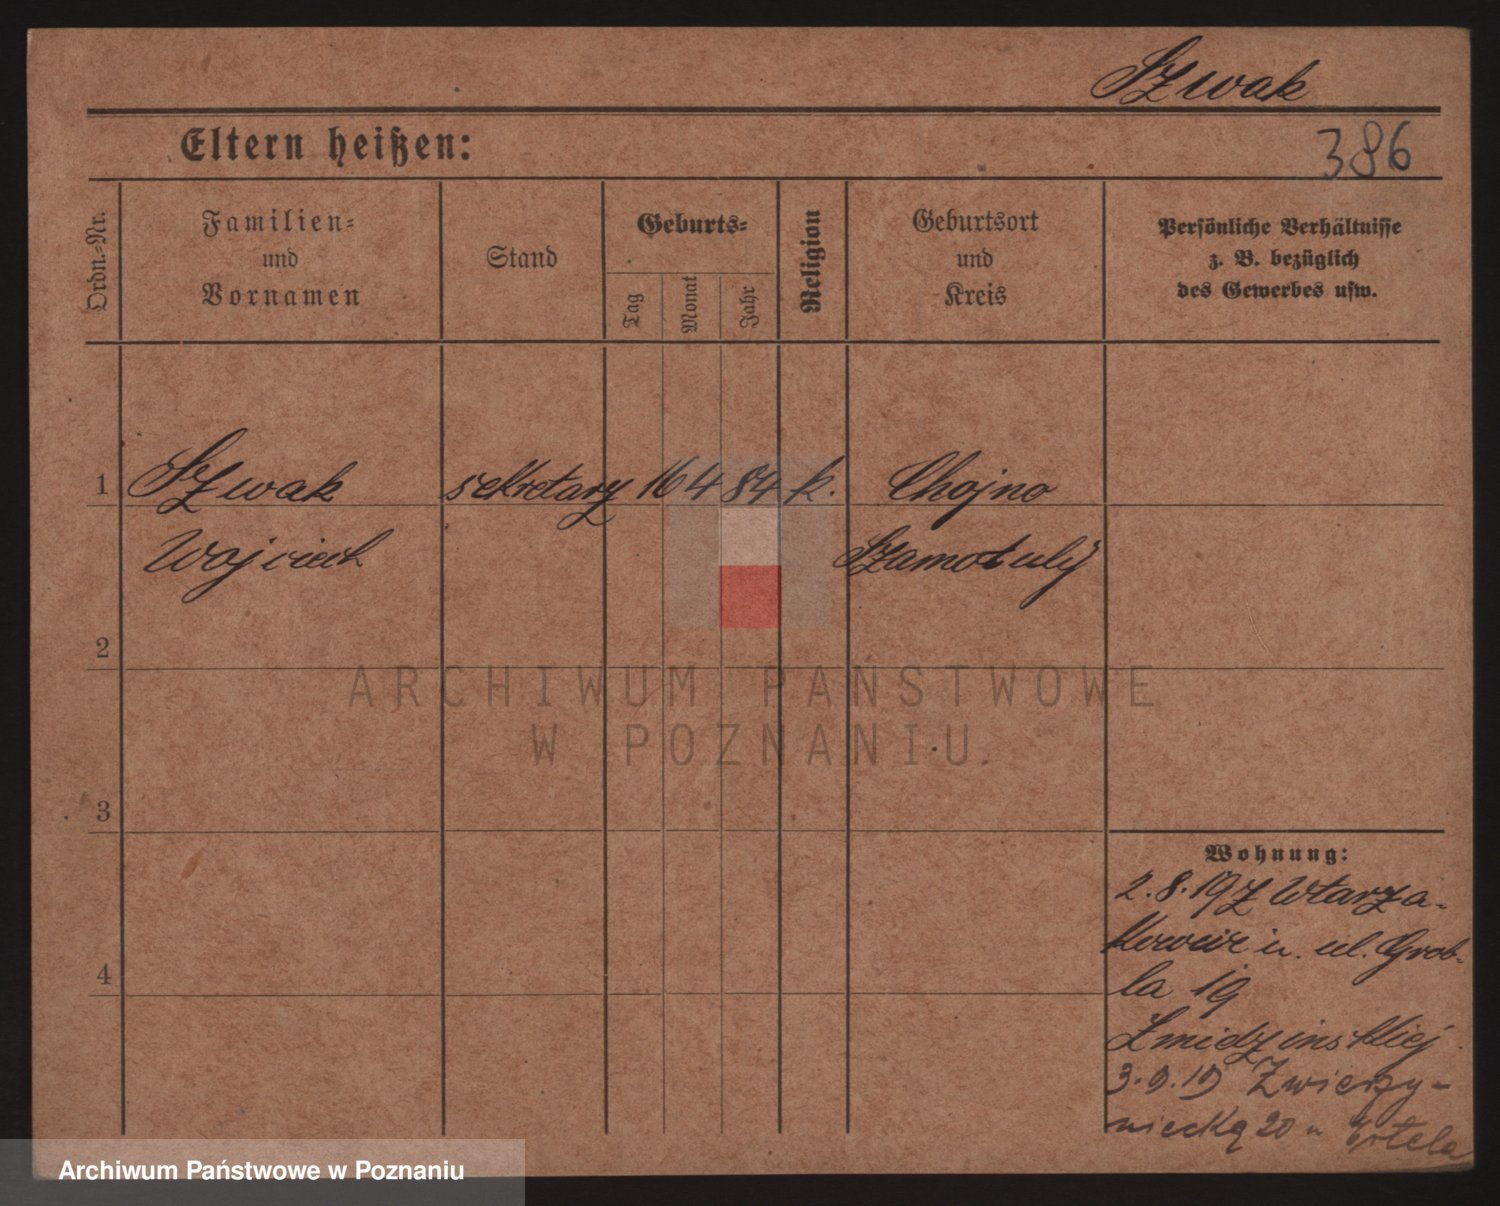 Szwak
Eltern heißen:
386
Ordn.-Nr.
Familien-
und
Vornamen
Stand
Geburts-
Tag
Monat
Jahr
Religion
Geburtsort
und
Kreis
Persönliche Verhältnisse
z. B. bezüglich
des Gewerbes usw.
1 Szwak sekretarz 16 4 84 k. Chojno
Wojciech Szamotuły
2
3
4
Wohnung:
2.8.19 z
u. ul. Grob-
la 19
3.9.19 Zwierzy-
niecką 20 u Ertela
ARCHIWUM PAŃSTWOWE
W POZNANIU
Archiwum Państwowe w Poznaniu